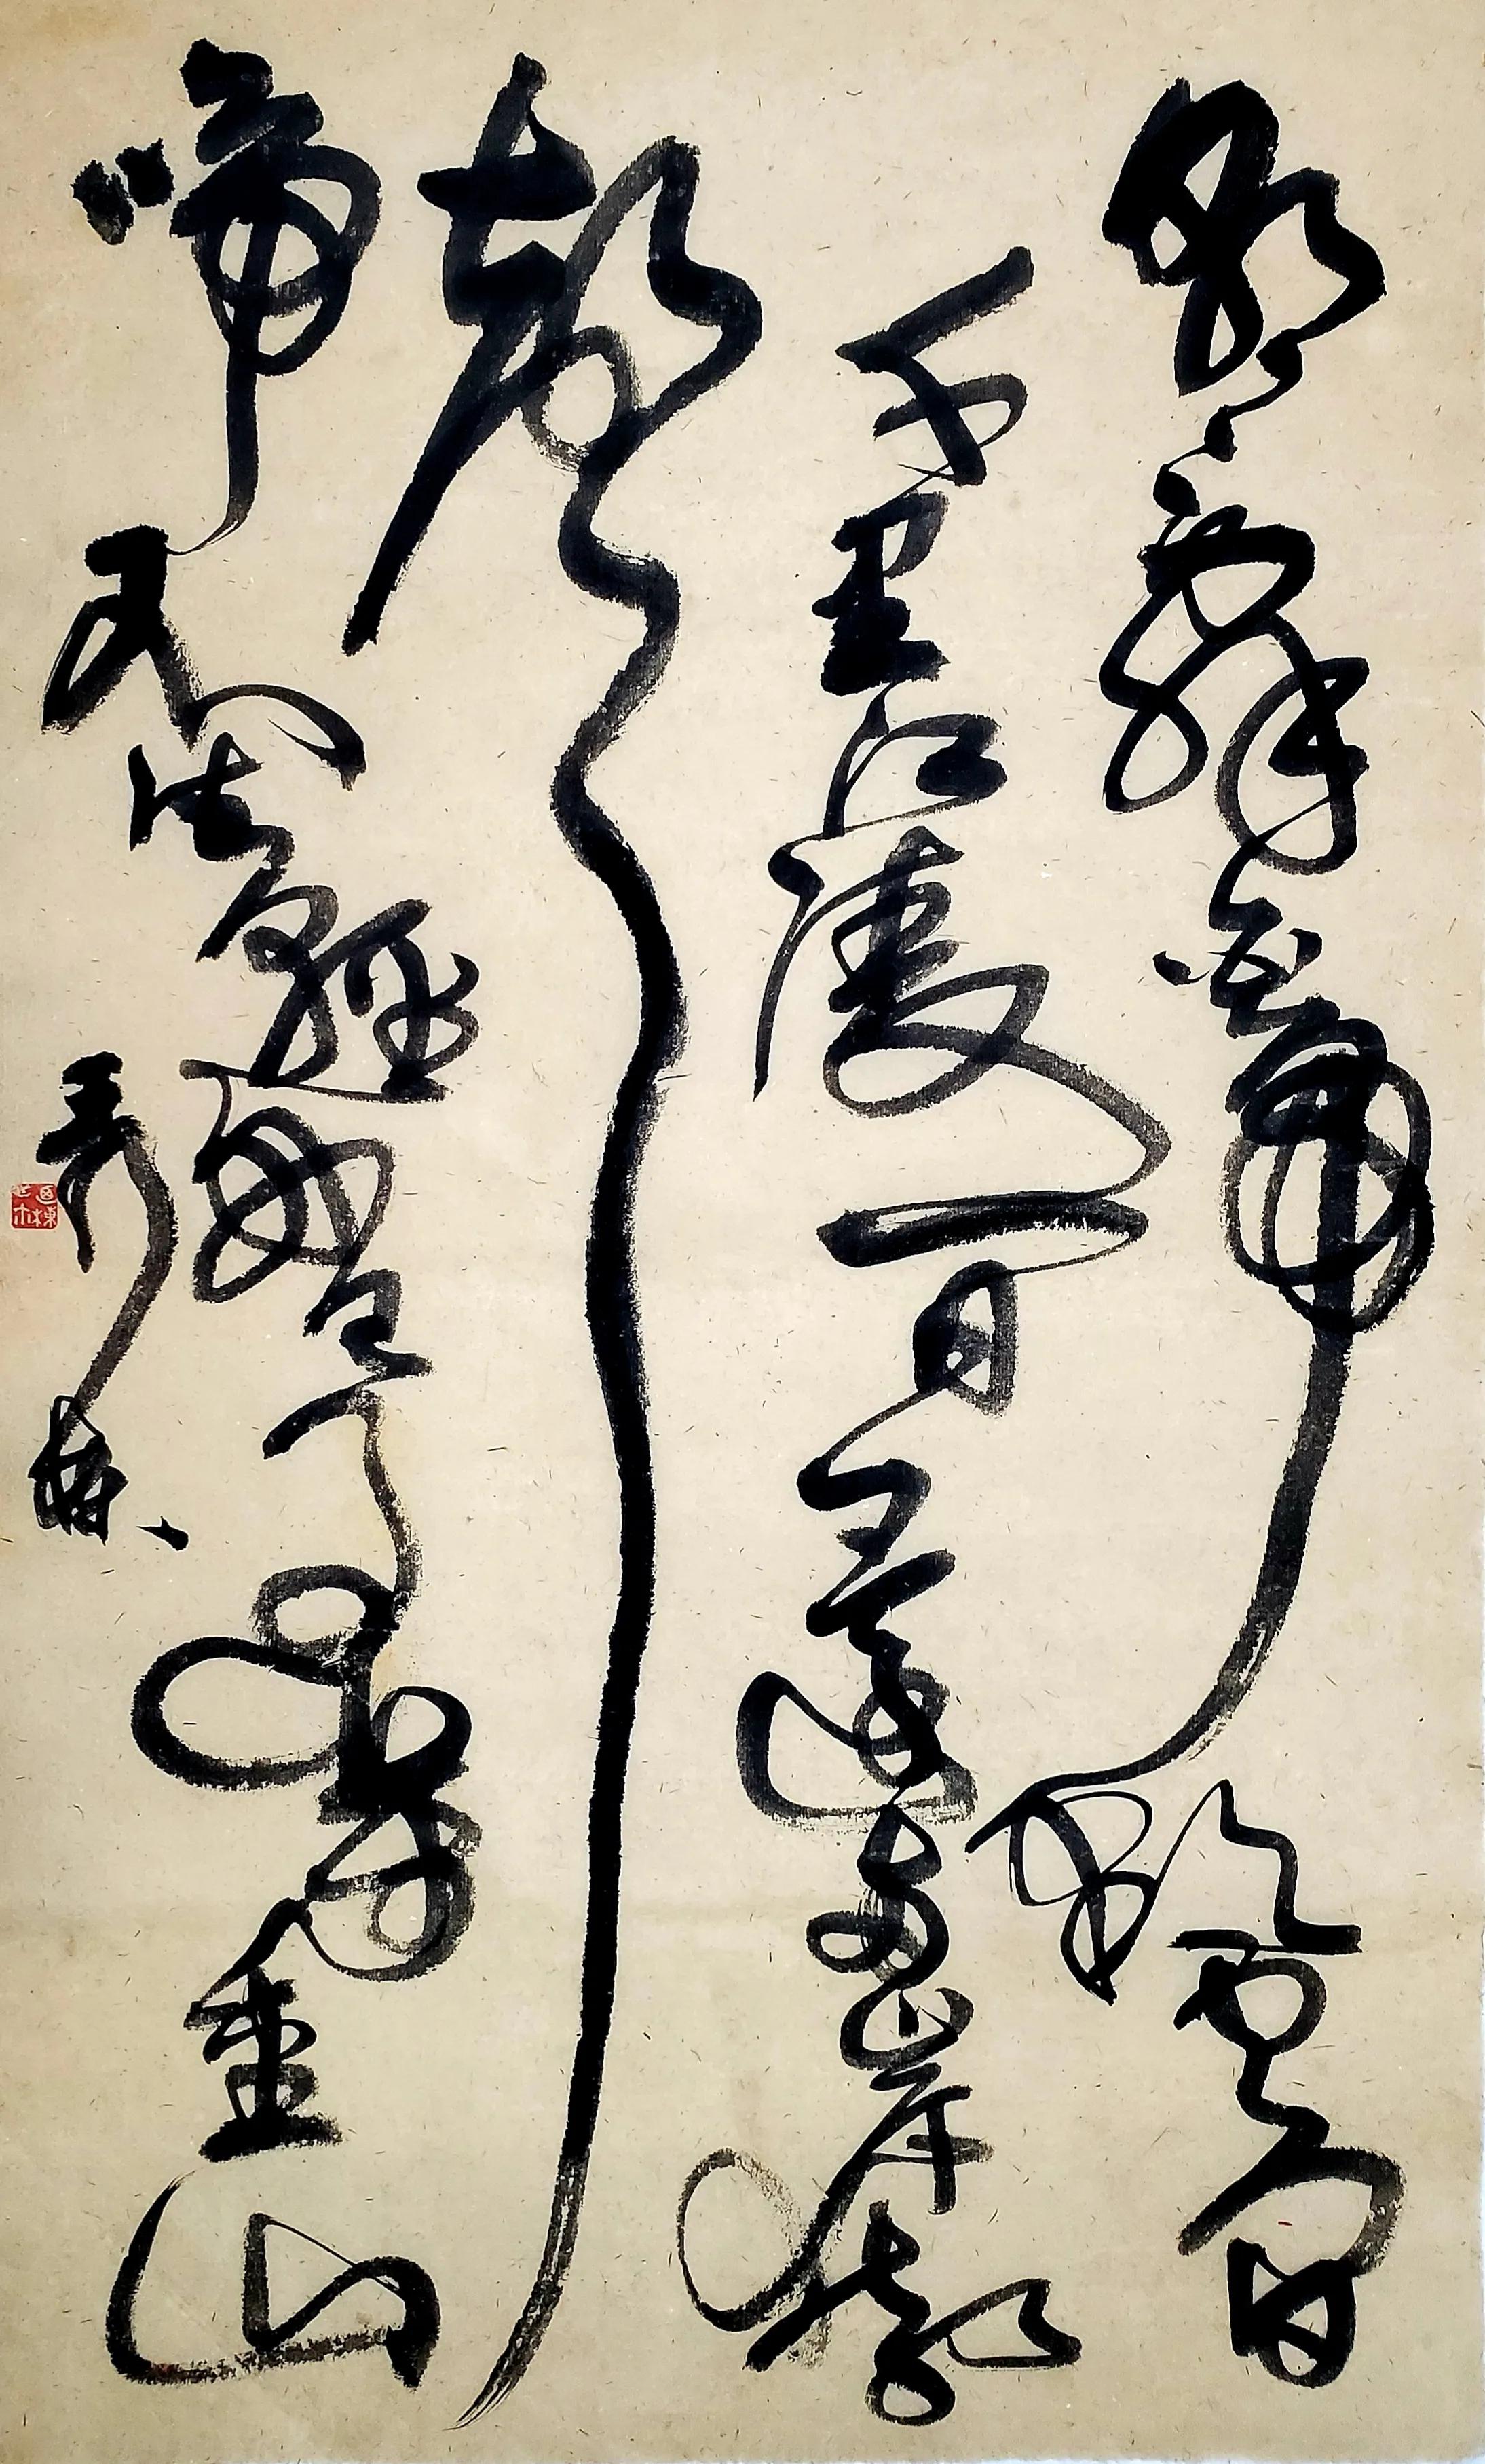 朝辭白帝彩雲間
千里江陵一日還兩岸猿
聲
啼不住輕舟已過萬重山